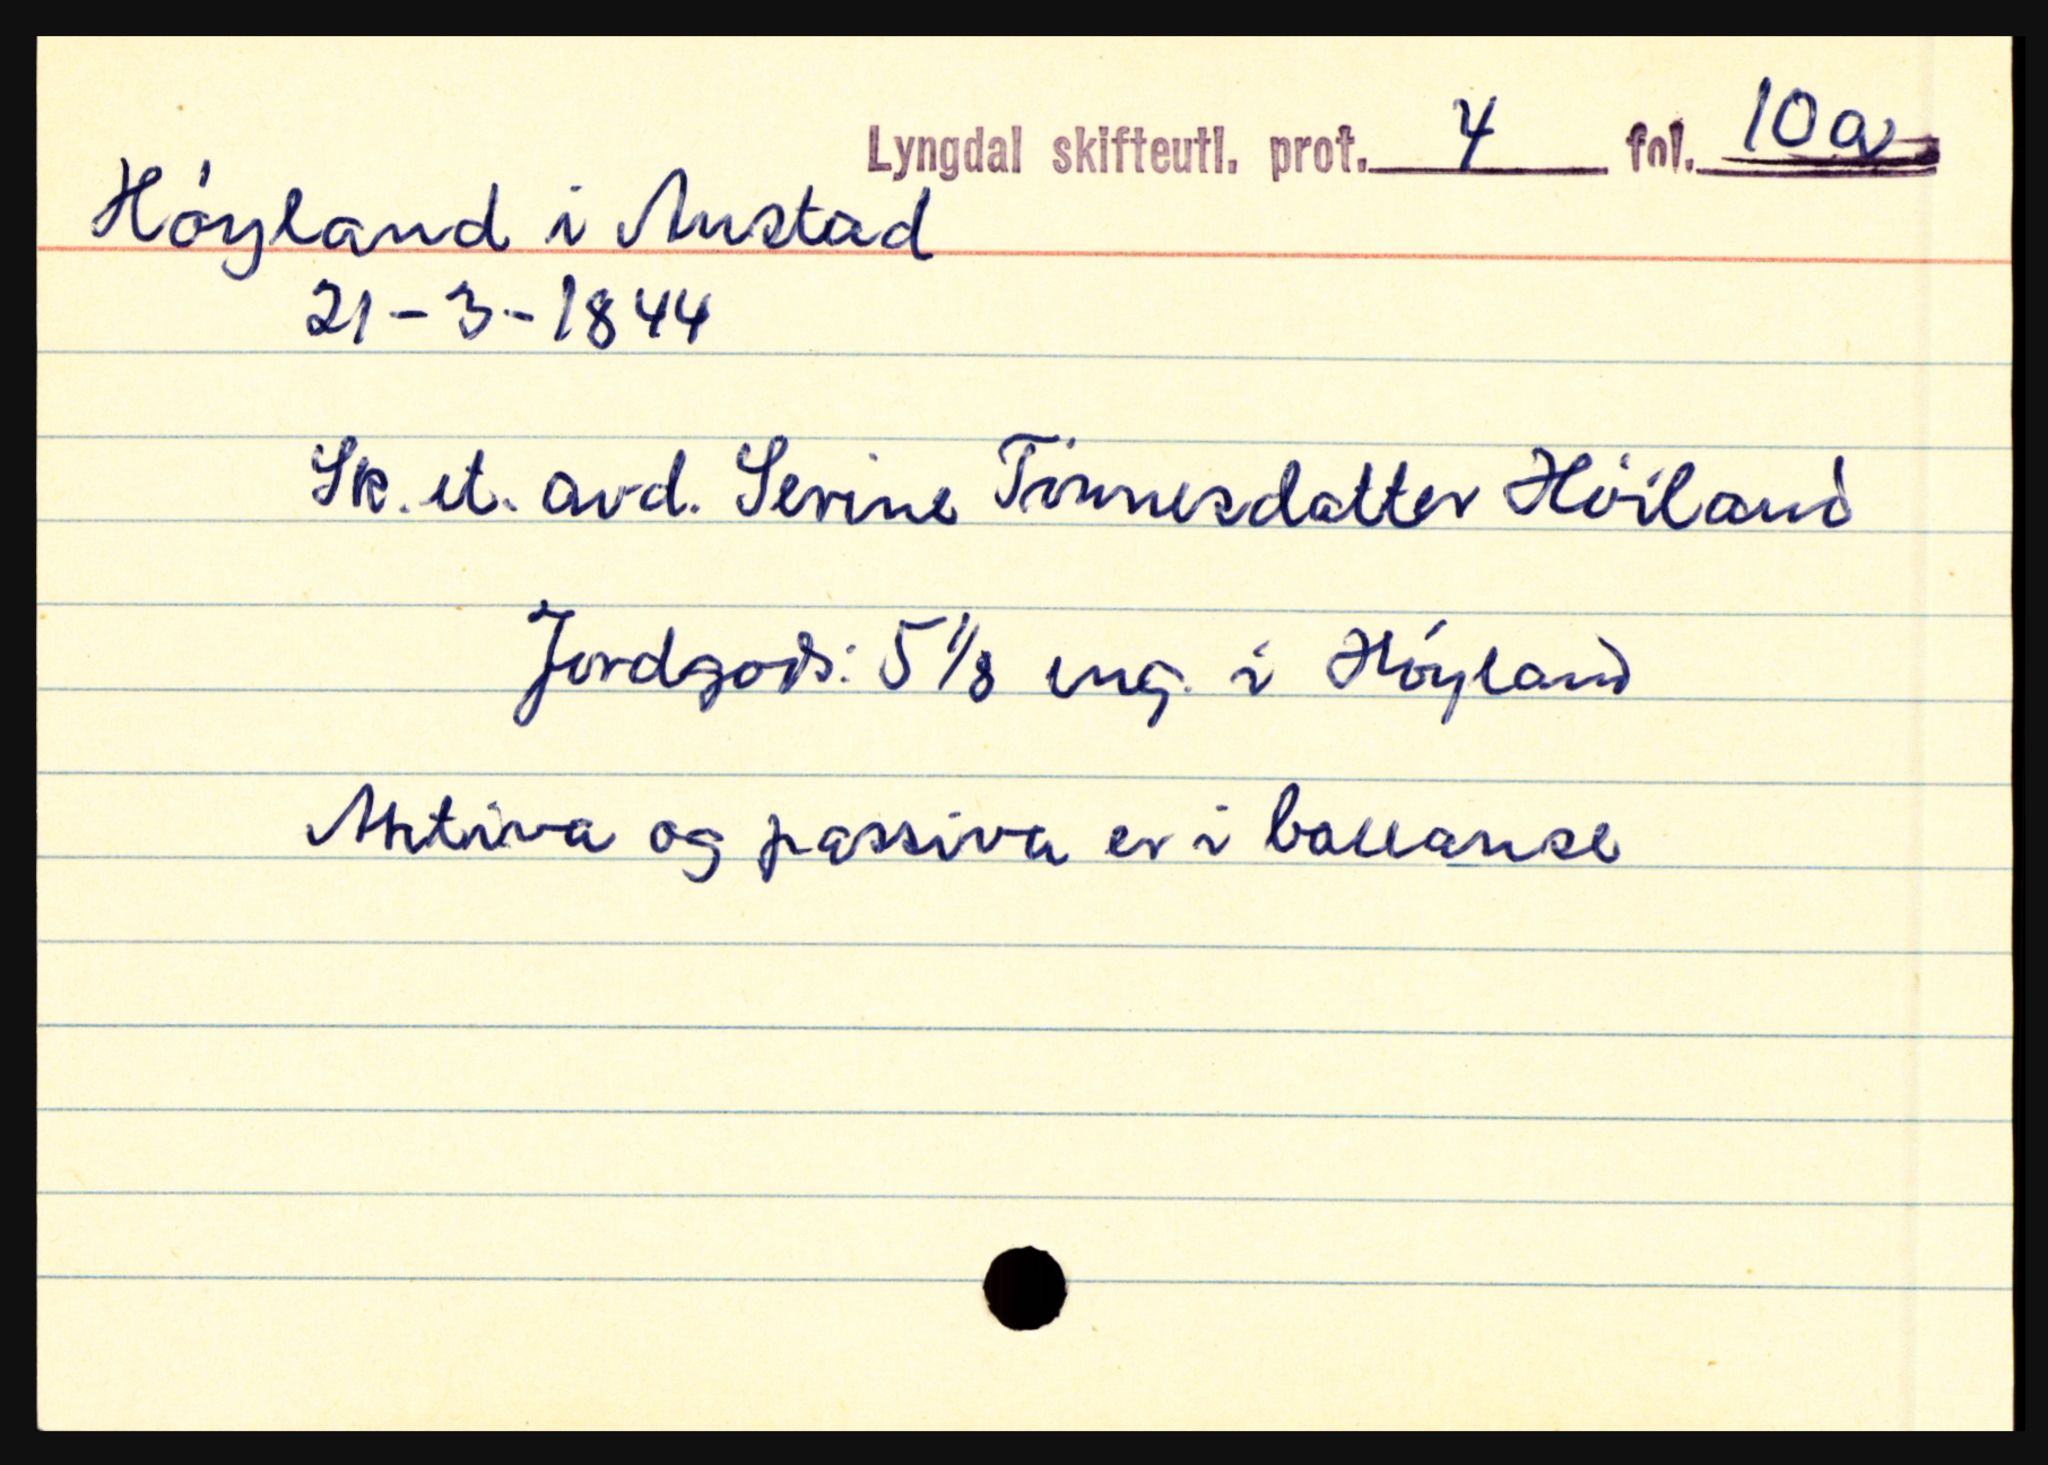 Lyngdal skifteutl. prot. 4 fol. 10a
Höyland i Austad
21-3-1844
Sk. et. avd. Serine Tönnesdatter Höiland
Jordgods: 5 1/8 eng. i Höyland
Aktiva og passiva er i ballanse